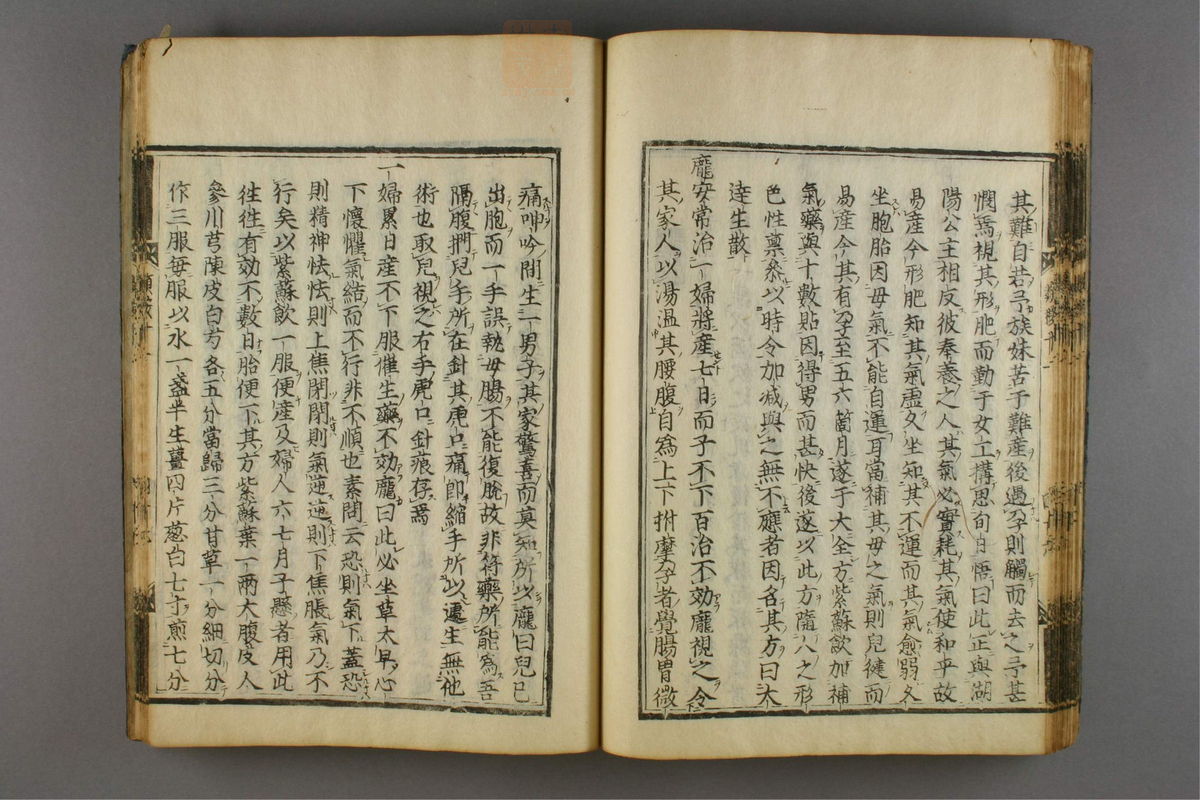 其難自若予族妹苦于難産後遇孕則觸而去之予甚
憫焉視其形肥而勤于女工構思旬日悟曰此正與湖
陽公主相反彼奉養之人其氣必實耗其氣使和平故
易産今形肥知其氣虚久坐知其不運而其氣愈弱久
坐胞胎因母氣不能自運耳當補其母之氣則兒健而
易産今其有孕至五六箇月遂于大全方紫蘇飲加補
氣藥與十數貼因得男而甚快後遂以此方隨人之形
色性禀參以時令加減與之無不應者因名其方曰大
達生散
龐安常治一婦將産七日而子不下百治不効龐視之令
其家人以湯温其腰腹自爲上下拊摩孕者覺腸胃微
痛呻吟間生一男子其家驚喜而莫知所以龐曰兒已
出胞而一手誤執母腸不能復脱故非符藥所能爲吾
隔腹捫兒手所在針其虎口痛即縮手所以遽生無他
術也取兒視之右手虎口針痕存焉
一婦累日産不下服催生藥不効龐曰此必坐草太早心
下懷懼氣結而不行非不順也素問云恐則氣下蓋恐
則精神怯怯則上焦閉閉則氣逆逆則下焦脹氣乃不
行矣以紫蘇飲一服便産及婦人六七月子懸者用此
徃徃有効不數日胎便下其方紫蘇葉一兩大腹皮人
參川芎陳皮白芍各五分當歸三分甘草一分細切分
作三服毎服以水一盞半生薑四片葱白七寸煎七分